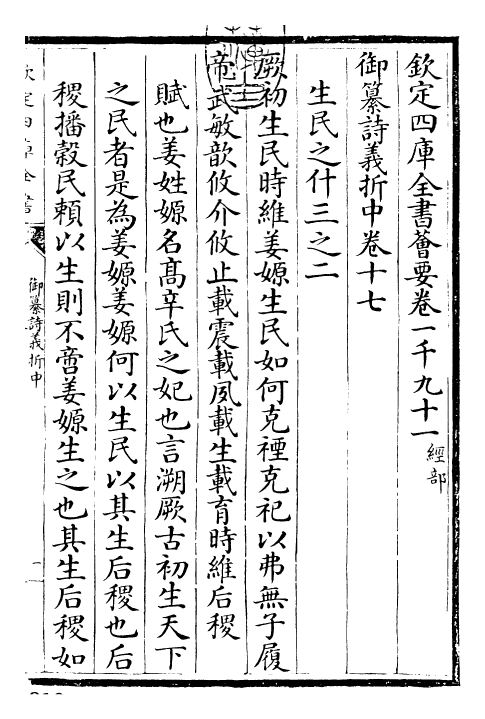 欽定四庫全書薈要卷一千九十一 經部
御纂詩義折中卷十七
生民之什三之二
厥初生民時維姜嫄生民如何克禋克祀以弗無子履
帝武敏歆攸介攸止載震載夙載生載育時維后稷
賦也姜姓嫄名高辛氏之妃也言溯厥古初生天下
之民者是為姜嫄姜嫄何以生民以其生后稷也后
稷播穀民賴以生則不啻姜嫄生之也其生后稷如
御纂詩義折中